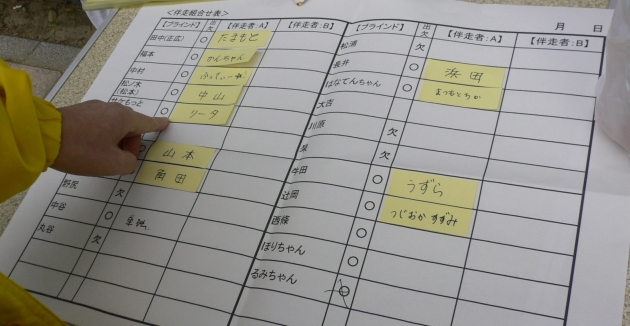 ＜伴走組合せ表＞
月 日
【ブラインド】 出欠 【伴走者：A】 【伴走者：B】
田中(正広) ○ たまもと
福本 ○ かんちゃん
中村 ○
松ノ木(松本) ○ 中山
サケもっと ○ リータ
山本
角田
野尻 欠
中谷 ○ 単独
丸谷 欠
【ブラインド】 出欠 【伴走者：A】 【伴走者：B】
松浦 欠
長井 ○ 浜田
はなてんちゃん ○ まつもとちか
大吉
川原 欠
泉
牛田 ○ うずら
辻岡 ○ つじおかすずみ
西條 ○
ほりちゃん ○
るみちゃん ○